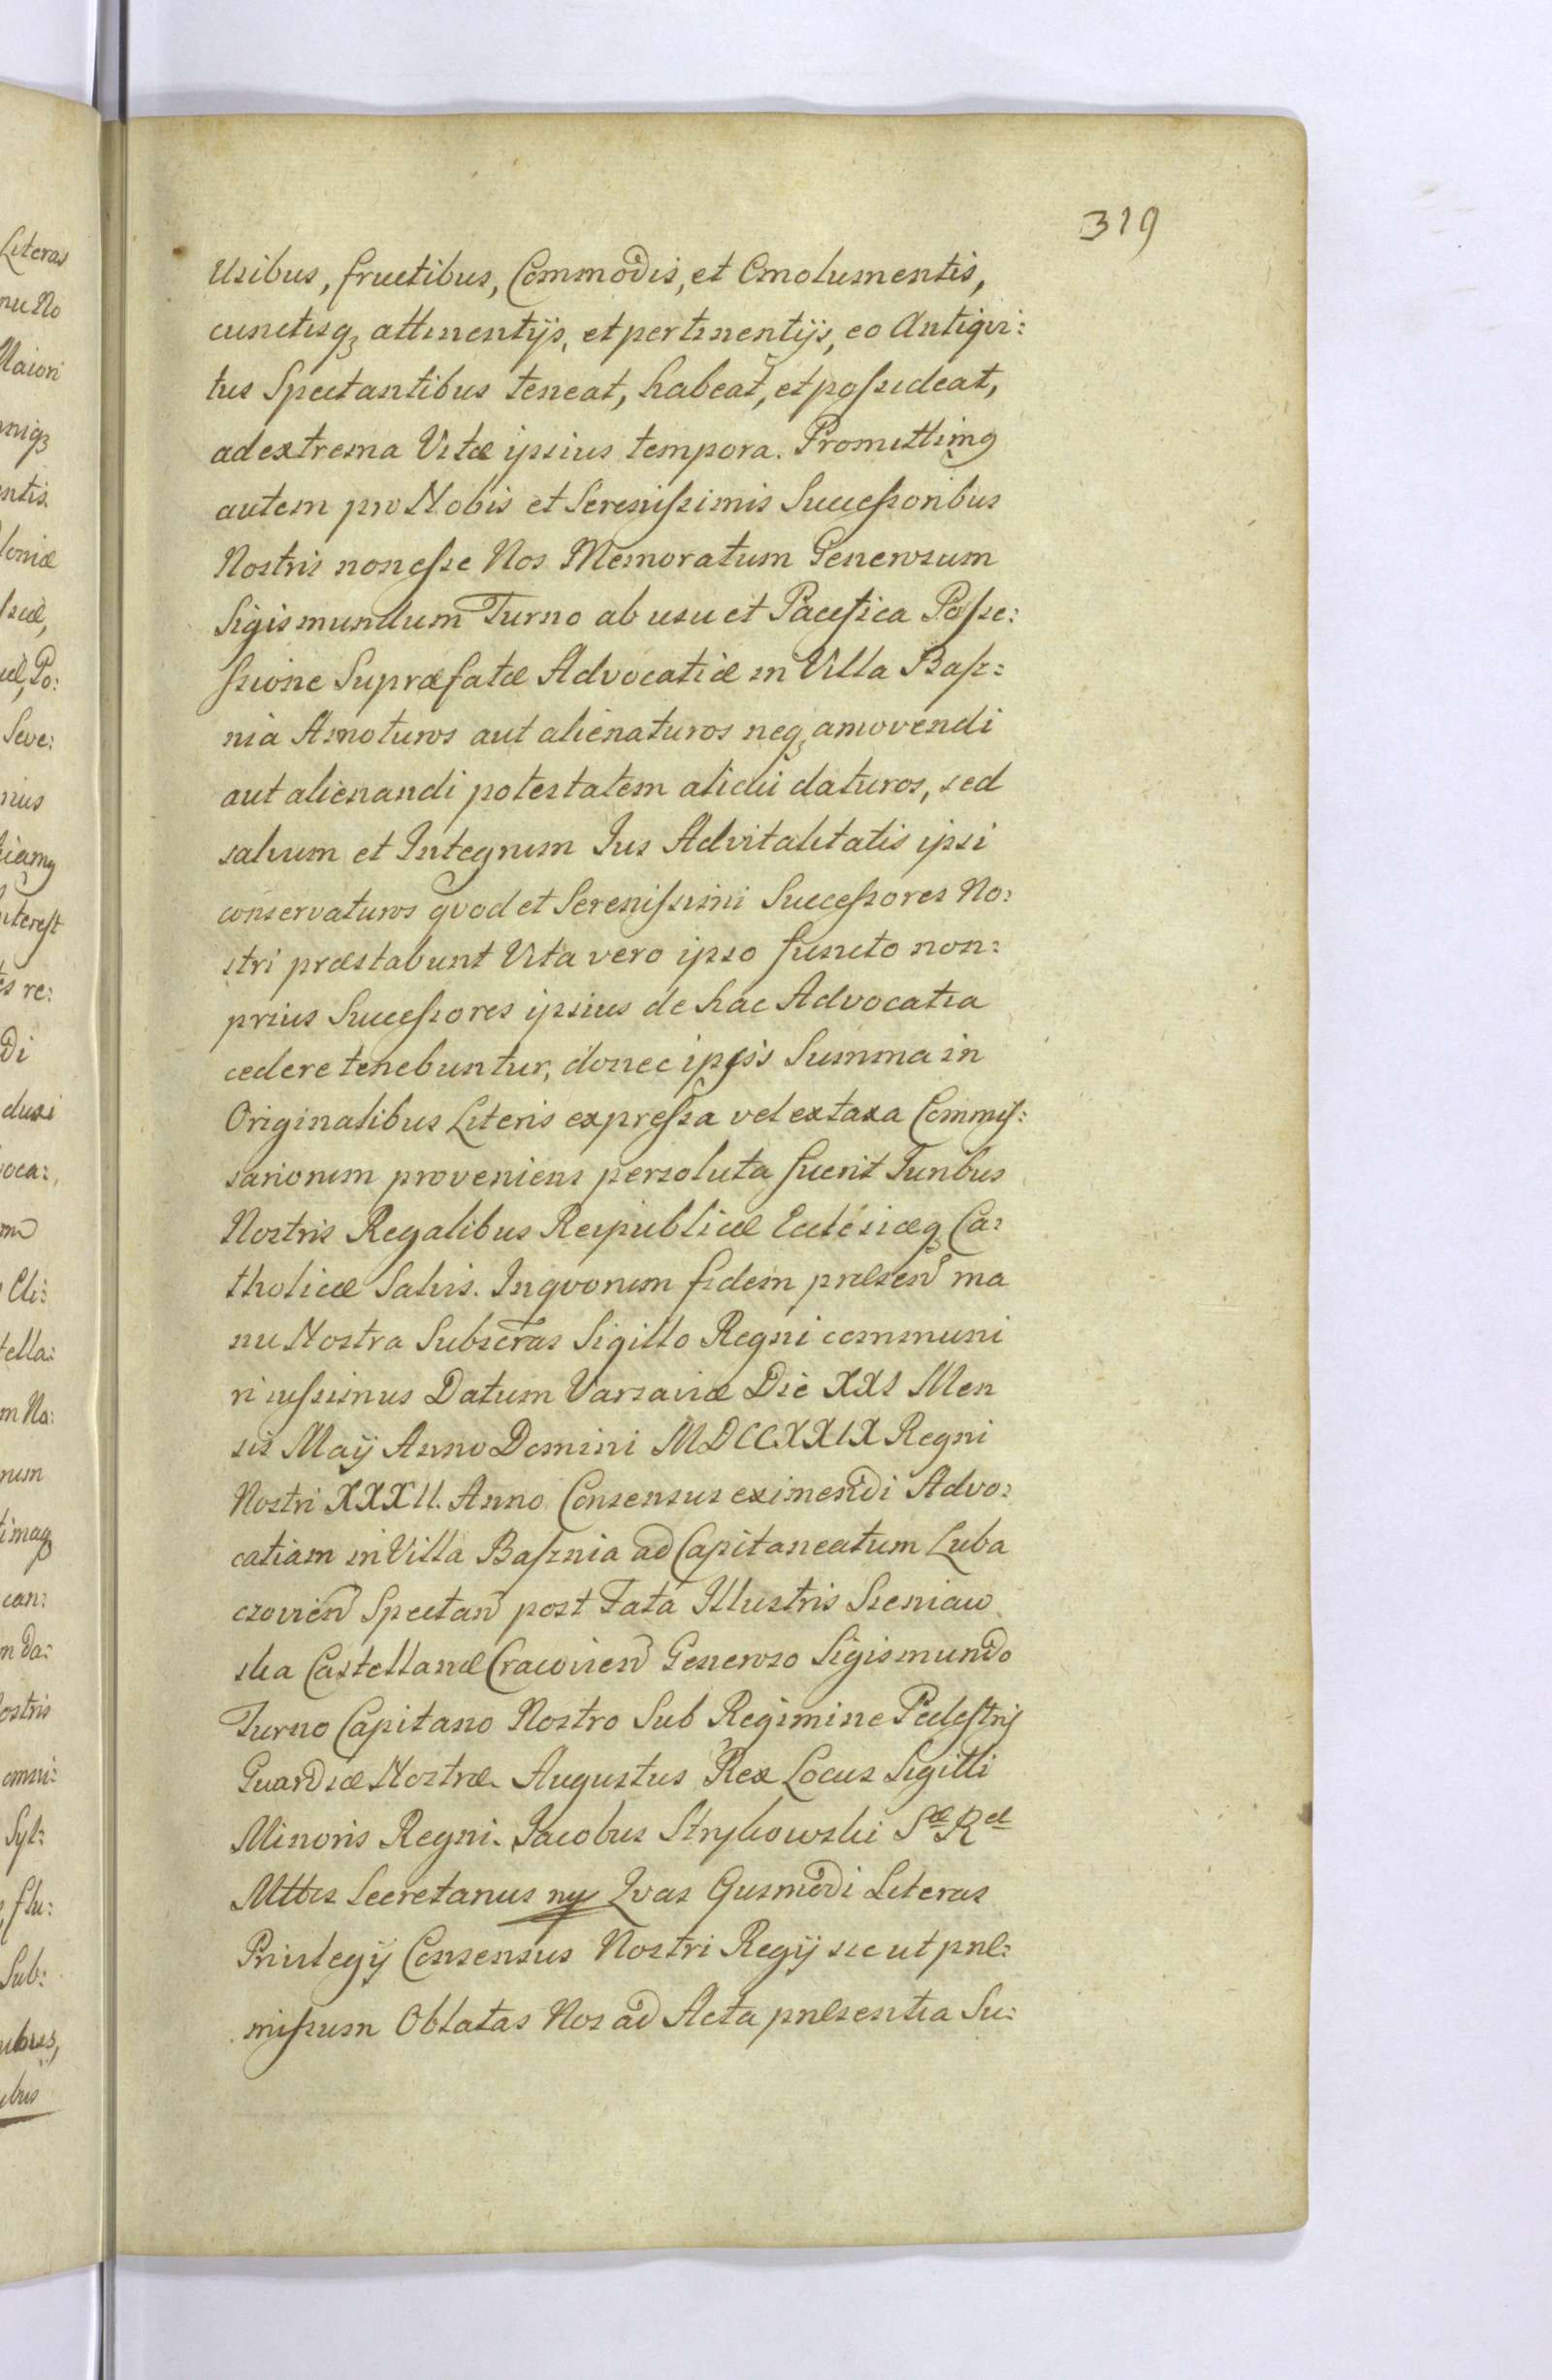 319
Usibus, fructibus, Commodis, et Emolumentis,
cunctisq; attinentijs, et pertinentijs, eo Antiqvi:
tus Spectantibus teneat, habeat, et possideat,
ad extrema Vitæ ipsius tempora. Promittimq
autem pro Nobis et Serenissimis Successoribus
Nostris non esse Nos Memoratum Generosum
Sigismundum Turno ab usu et Pacifica Posse:
ssione Supræfatæ Advocatiæ in Villa Basz:
nia Amoturos aut alienaturos neq; amovendi
aut alienandi potestatem alicui daturos, sed
salvum et Integrum Jus Advitalitatis ipsi
conservaturos qvod et Serenissimi Successores No:
stri præstabunt Vita vero ipso functo non:
prius Successores ipsius de hac Advocatia
cedere tenebuntur, donec ipsis Summa in
Originalibus Literis expressa vel ex taxa Commis:
sariorum proveniens persoluta fuerit Iuribus
Nostris Regalibus Reipublicæ Ecclesiæq; Ca:
tholicæ Salvis. In qvorum fidem præsen ma
nu Nostra Subscras Sigillo Regni communi
ri iussimus Datum Varsaviæ Die XXI Men
sis Maÿ Anno Domini MDCCXXIX Regni
Nostri XXXII. Anno Consensus eximendi Advo:
catiam in Villa Basznia ad Capitaneatum Luba
czovien Spectan post Fata Illustris Sieniaw
ska Castellanæ Cracovien Generoso Sigismundo
Turno Capitano Nostro Sub Regimine Pedestris
Guardiæ Nostræ. Augustus Rex Locus Sigilli
Minoris Regni. Jacobus Strykowski Sæ Ræ
Mttis Secretarius mp Qvas Ejusmodi Literas
Privilegÿ Consensus Nostri Regÿ sic ut præ:
missum Oblatas Nos ad Acta præsentia Su: